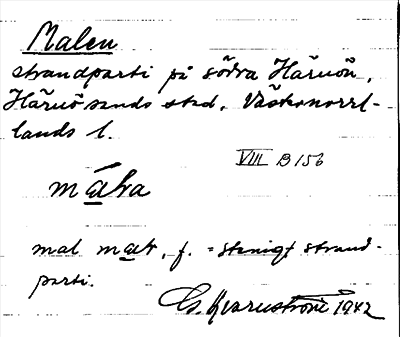 Malen
strandparti på södra Härnön,
Härnösands stad, Västernorrl-
lands l.
VIII B 156
mal, f. = stenigt strand-
parti.
Kvarnström 1942